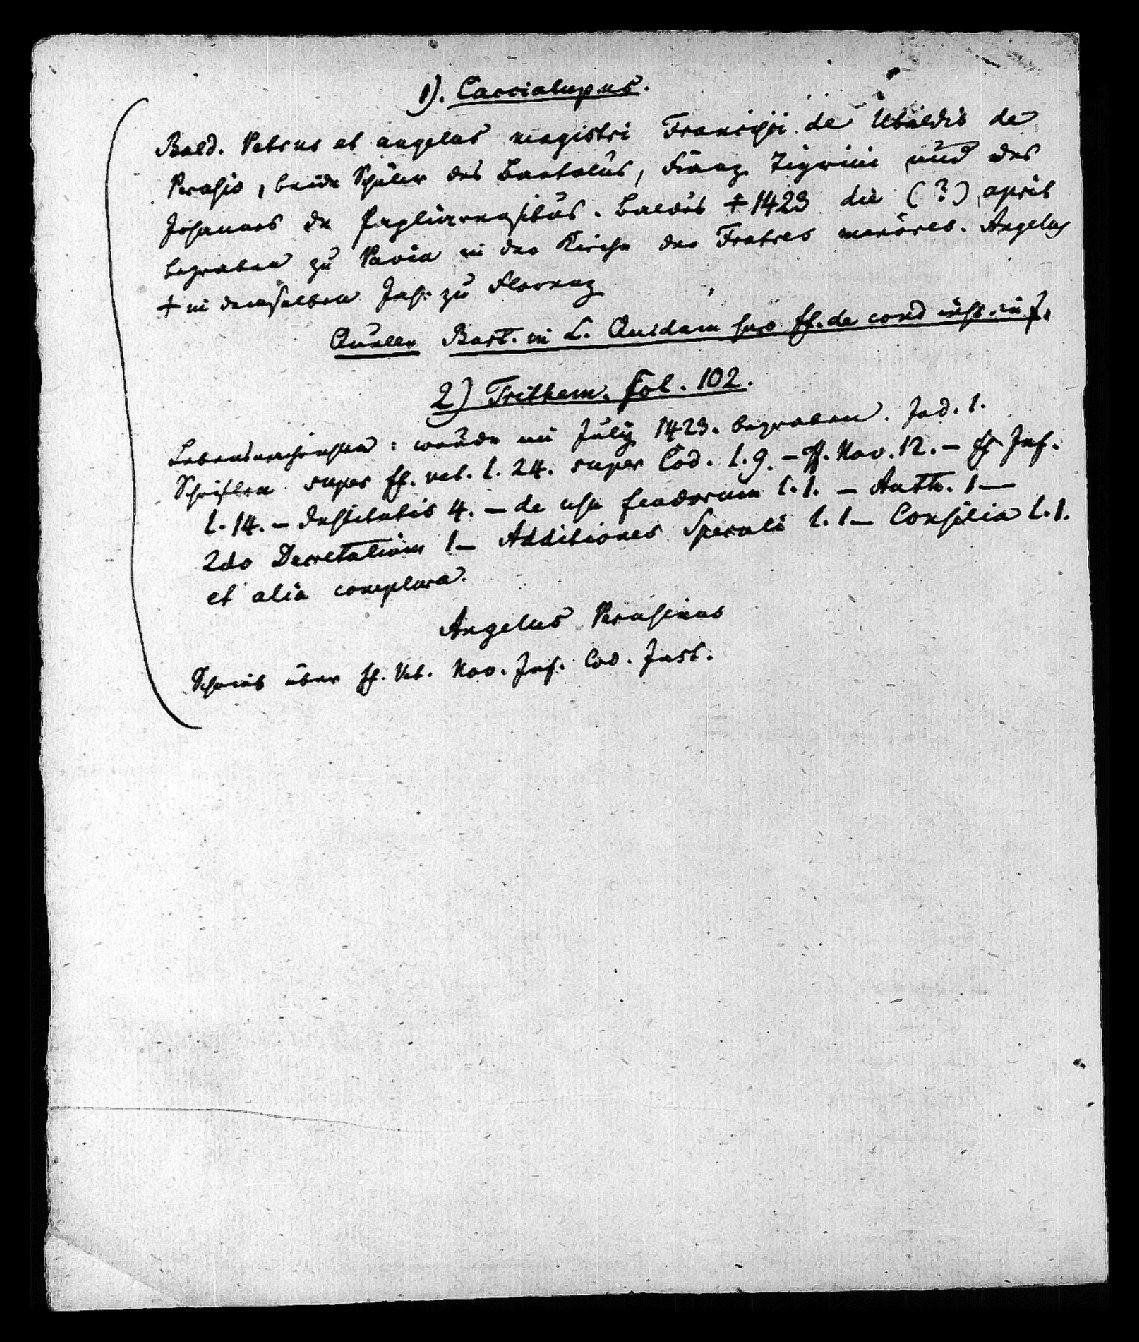 1). Caccialupus.
Bald. Petrus et angelus magistri Francisci de Ubaldis de
Perusio, beide Schüler des Bartolus, Franz Tigrini und des
Johannes de Pagliarensibus. Baldus + 1423 die (?) april
begraben zu Pavia in der Kirche der Fratres minores. Angelus
+ in demselben Jah: zu Florenz
Quellen Bart. in L. Quidam ff. de cond inst.
2) Trithem. fol. 102.
: wurde im July 1423. begraben. Ind. 1.
Schriften super ff. vet. l. 24. super Cod. l. 9. – ff. Nov. 12. – ff Inf.
l. 14. – Institutis 4. – de usu feudorum l. 1. – Auth. 1 —
2do Decretalium 1 — Additiones Speculi l. 1 — Consilia l. 1.
et alia complura.
Angelus Perusinus
Schrieb über ff. Vet. Nov. Inf. Cod. Inst.